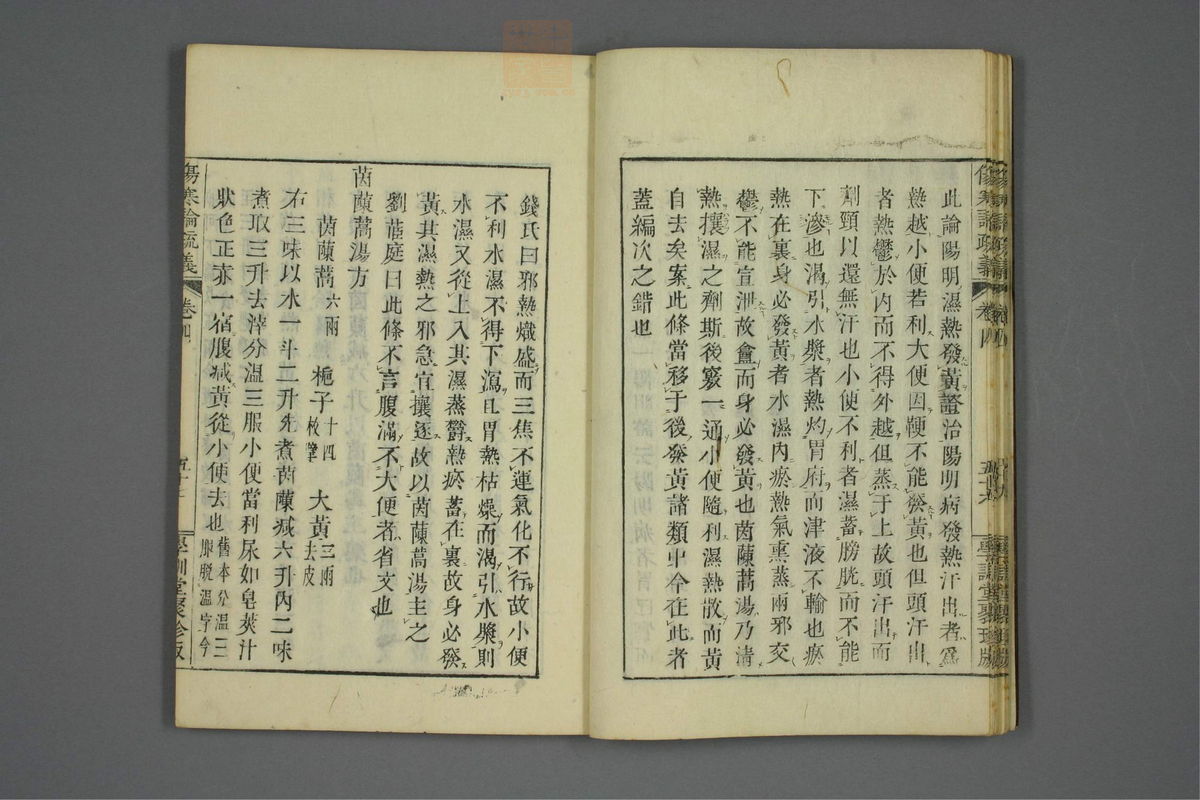 此論陽明濕熱發黃證治陽明病發熱汗出者爲
熱越小便若利大便因鞕不能發黃也但頭汗出
者熱鬱於內而不得外越但蒸于上故頭汗出而
劑頸以還無汗也小便不利者濕蓄膀胱而不能
下滲也渴引水漿者熱灼胃府而津液不輸也瘀
熱在裏身必發黃者水濕內瘀熱氣熏蒸兩邪交
鬱不能宣泄故盦而身必發黃也茵蔯蒿湯乃清
熱攘濕之劑斯後竅一通小便隨利濕熱散而黃
自去矣案此條當移于後發黃諸類中今在此者
蓋編次之錯也
傷寒論疏義
卷四
學訓堂聚珍版
錢氏曰邪熱熾盛而三焦不運氣化不行故小便
不利水濕不得下瀉且胃熱枯燥而渴引水漿則
水濕又從上入其濕蒸鬱熱瘀蓄在裏故身必發
黃其濕熱之邪急宜攘逐故以茵蔯蒿湯主之
劉茝庭曰此條不言腹滿不大便者省文也
茵蔯蒿湯方
茵蔯蒿六兩 梔子十四枚擘 大黃三兩去皮
右三味以水一斗二升先煮茵蔯減六升內二味
煮取三升去滓分溫三服小便當利尿如皂莢汁
狀色正赤一宿腹減黃從小便去也舊本分溫三服脫溫字今
傷寒論疏義
卷四
學訓堂聚珍版